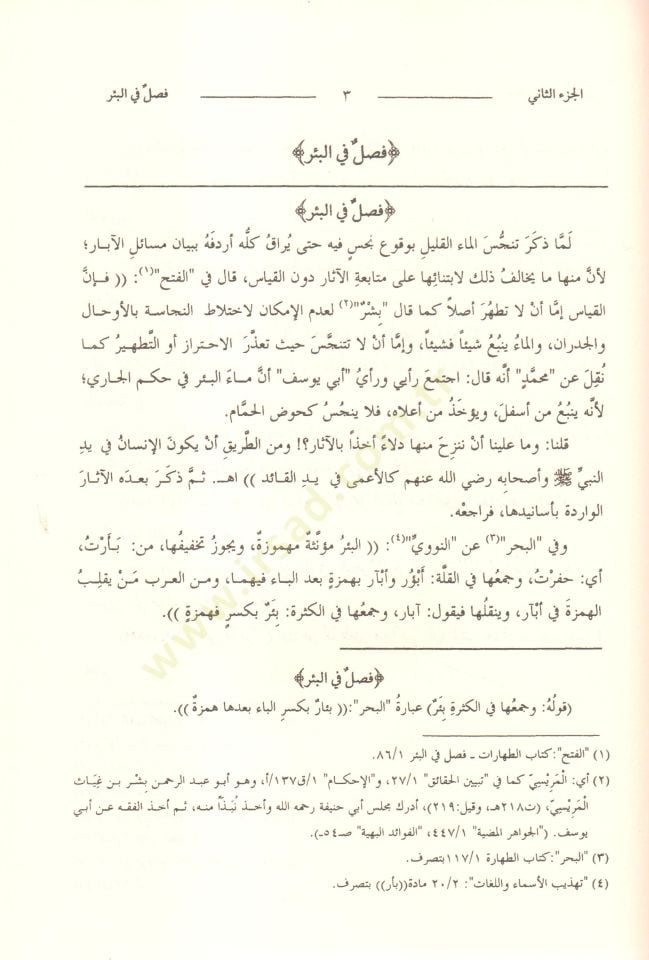 الجزء الثاني ٣ فصلٌ في البئر
﴿فصلٌ في البئر﴾
﴿فصلٌ في البئر﴾
لَمَّا ذكَرَ تنجُّسَ الماء القليل بوقوع نجسٍ فيه حتى يُراقُ كلُّه أردفَهُ ببيان مسائل الآبار؛
لأنَّ منها ما يخالفُ ذلك لابتنائِها على متابعةِ الآثار دون القياس، قال في "الفتح"(١): (( فإنَّ
القياس إمَّا أنْ لا تطهُرَ أصلاً كما قال "بِشْرٌ"(٢) لعدم الإمكان لاختلاط النجاسة بالأوحال
والجدران، والماءُ ينبُعُ شيئاً فشيئاً، وإمَّا أنْ لا تتنجَّسَ حيث تعذَّرَ الاحتراز أو التَّطهيرُ كما
نُقِلَ عن "محمَّدٍ" أنَّه قال: اجتمعَ رأيي ورأيُ "أبي يوسف" أنَّ ماءَ البئر في حكم الجاري؛
لأنَّه ينبُعُ من أسفلَ، ويؤخَذُ من أعلاه، فلا ينجُسُ كحوض الحمَّام.
قلنا: وما علينا أنْ ننزِحَ منها دلاءً أخذاً بالآثار؟! ومن الطَّريقِ أنْ يكونَ الإنسانُ في يدِ
النبيِّ ﷺ وأصحابِه رضي الله عنهم كالأعمى في يدِ القائد )) اهـ. ثمَّ ذكَرَ بعدَه الآثارَ
الواردة بأسانيدها، فراجعْه.
وفي "البحر"(٣) عن "النوويِّ"(٤): (( البئرُ مؤنَّثةٌ مهموزةٌ، ويجوزُ تخفيفُها، من: بَأَرْتُ،
أي: حفرْتُ، وجمعُها في القلَّة: أَبْؤُر وأَبْآر بهمزةٍ بعد الباء فيهما، ومن العرب مَنْ يقلِبُ
الهمزةَ في أبْآر، وينقلُها فيقول: آبار، وجمعُها في الكثرة: بِئَرٌ بكسرٍ فهمزةٍ )).
﴿فصلٌ في البئر﴾
(قولُهُ: وجمعُها في الكثرةِ بِئَرٌ) عبارةُ "البحر":(( بئارٌ بكسرِ الباء بعدها همزةٌ )).
(١) "الفتح":كتاب الطهارات ـ فصل في البئر ٨٦/١.
(٢) أي: الْمَرِيْسِيّ كما في "تبيين الحقائق" ٢٧/١، و"الإحكام" ١/ق١٣٧/أ، وهو أبو عبد الرحمن بِشْر بن غِيَاث
الْمَرِيْسِيّ، (ت٢١٨هـ، وقيل:٢١٩)، أدرك مجلس أبي حنيفة رحمه الله وأخذ نُبَذاً منه، ثم أخذ الفقه عن أبي
يوسف. ("الجواهر المضية" ٤٤٧/١، "الفوائد البهية" صـ٥٤ـ).
(٣) "البحر":كتاب الطهارة ١١٧/١بتصرف.
(٤) "تهذيب الأسماء واللغات": ٢٠/٢ مادة((بأر)) بتصرف.
www.irsad.com.tr